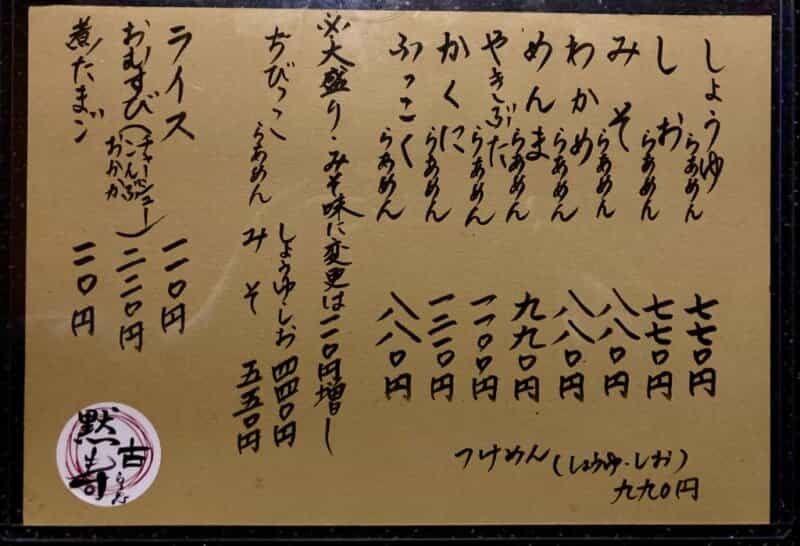 しょうゆらあめん 七七〇円
しおらあめん 七七〇円
みそらあめん 八八〇円
わかめらあめん 八八〇円
めんまらあめん 九九〇円
やきぶたらあめん 一一〇〇円
かくにらあめん 一三二〇円
ぶっこくらあめん 八八〇円
つけめん(しょうゆ・しお)
九九〇円
※大盛り・みそ味に変更は一一〇円増し
ちびっこらあめん しょうゆ・しお 四四〇円
みそ 五五〇円
ライス 一一〇円
おむすび(チャーシュー こんぶ おかか) 二二〇円
煮たまご 一一〇円
古
黙壽